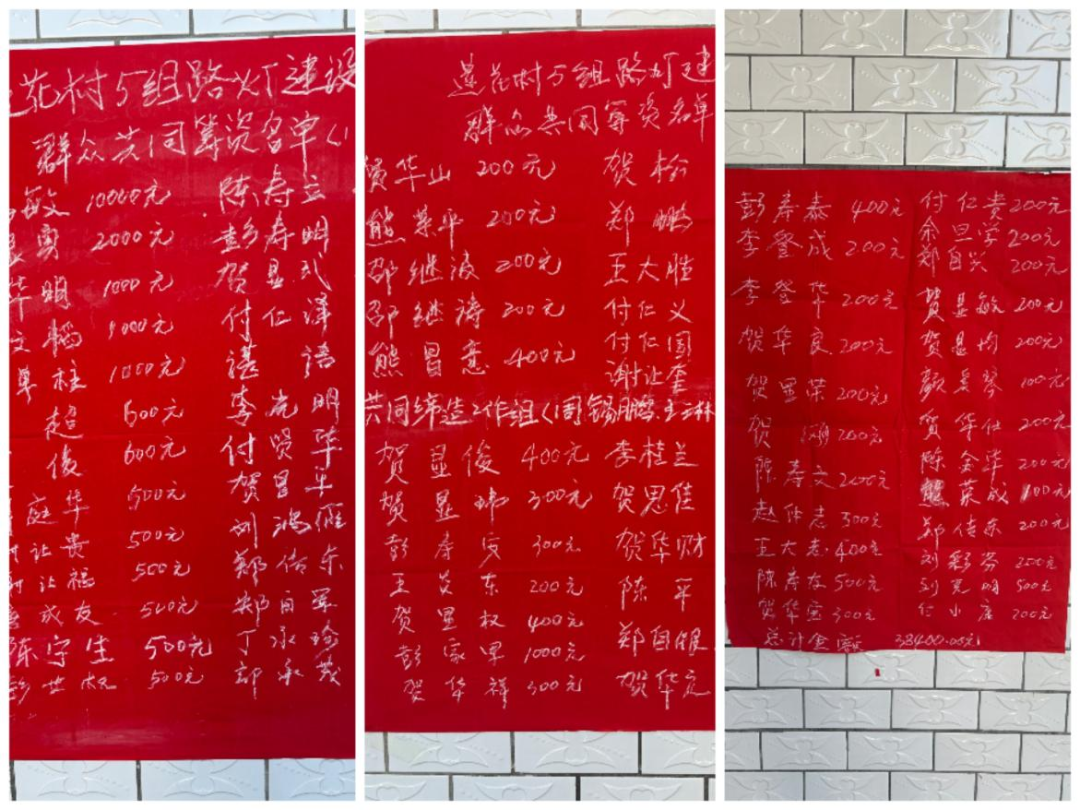 花村5组路灯建设
群众共同筹资名单(
敏 10000元 陈寿立
勇 2000元 彭寿明
华明 1000元 贺显礼
韬 1000元 付仁泽
单柱 1000元 谌语
超 600元 李光明
俊 600元 付贤华
庭华 500元 贺昌平
让贵 500元 刘鸿雁
让福 500元 郑传东
成友 500元 郑自军
陈守生 500元 丁永珍
彭世权 500元 邵永茂
莲花村5组路灯建
群众共同筹资名单
贺华山 200元 贺松
熊荣平 200元 郑鹏
邵继波 200元 王大胜
邵继涛 200元 付仁义
熊昌意 400元 付仁国
谢让奎
共同缔造工作组(周锡鹏、王 林
贺显俊 400元 李桂兰
贺显炜 300元 贺思佳
彭寿安 300元 贺华财
王吴东 200元 陈平
贺显权 400元
彭家军 1000元 郑自银
贺华祥 300元 贺华元
彭寿泰 400元 付仁贵 200元
李登成 200元 余旦学 200元
郑自兴 200元
李登华 200元 贺显敏 200元
贺华良 200元 贺显均 200元
贺显荣 200元 颜美琴 100元
贺 200元 贺华仕 200元
陈寿文 200元 陈金华 200元
熊英成 100元
赵作志 300元 郑传东 200元
王大志 400元 刘彩芬 200元
陈寿友 500元 刘克明 500元
贺华宝 300元 仁小店 200元
总计金额 38400.00元